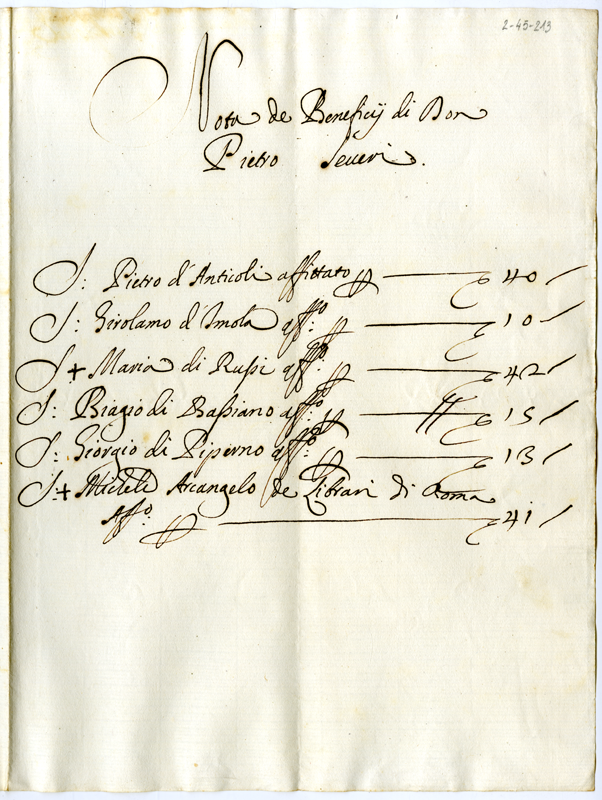 2-45-213
Nota de Beneficij di Don
Pietro Seueri.
S: Pietro d'Anticoli affittato 40
S: Girolamo d'Imola affo: 10
S + Maria di Russi affo: 42
S: Biagio di Bassiano affo: 15
S: Giorgio di Piperno affo: 13
S: + Michele Arcangelo de Librari di Roma
Affo: 41